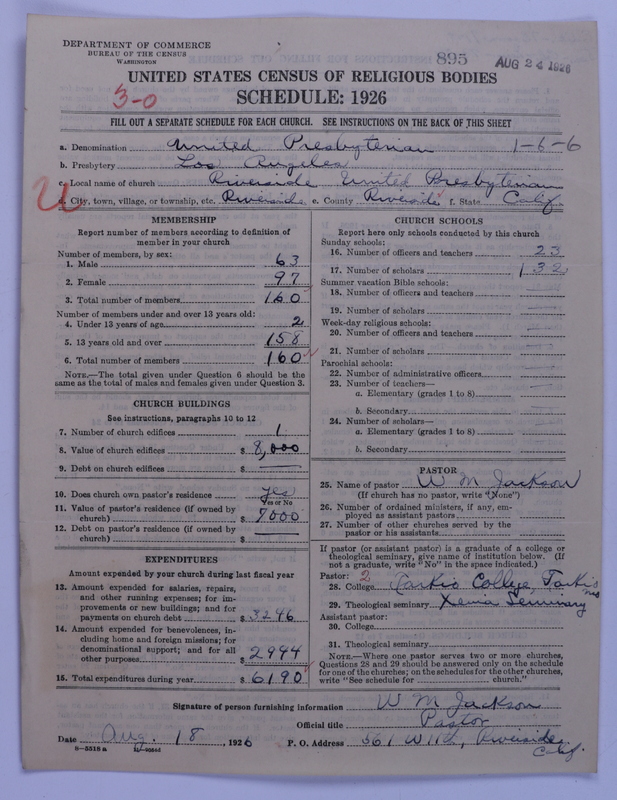 DEPARTMENT OF COMMERCE
BUREAU OF THE CENSUS
WASHINGTON
895
AUG 24 1926
UNITED STATES CENSUS OF RELIGIOUS BODIES
3-0
SCHEDULE: 1926
FILL OUT A SEPARATE SCHEDULE FOR EACH CHURCH. SEE INSTRUCTIONS ON THE BACK OF THIS SHEET
a. Denomination United Presbyterian 1-6-6
b. Presbytery Los Angeles
c. Local name of church Riverside United Presbyterian
d. City, town, village, or township, etc. Riverside e. County Riverside f. State Calif.
MEMBERSHIP
Report number of members according to definition of
member in your church
Number of members, by sex:
1. Male 63
2. Female 97
3. Total number of members 160
Number of members under and over 13 years old:
4. Under 13 years of age 2
5. 13 years old and over 158
6. Total number of members 160
NOTE.—The total given under Question 6 should be
same as the total of males and females given under Question 3.
CHURCH BUILDINGS
See instructions, paragraphs 10 to 12
7. Number of church edifices 1
8. Value of church edifices $ 8,000
9. Debt on church edifices $
10. Does church own pastor's residence yes
Yes or No
11. Value of pastor's residence (if owned by
church) $ 7000
12. Debt on pastor's residence (if owned by
church) $
EXPENDITURES
Amount expended by your church during last fiscal year
13. Amount expended for salaries, repairs,
and other running expenses; for im-
provements or new buildings; and for
payments on church debt $ 3246
14. Amount expended for benevolences, in-
cluding home and foreign missions; for
denominational support; and for all
other purposes $ 2944
15. Total expenditures during year $ 6190
CHURCH SCHOOLS
Report here only schools conducted by this church
Sunday schools:
16. Number of officers and teachers 23
17. Number of scholars 132
Summer vacation Bible schools:
18. Number of officers and teachers
19. Number of scholars
Week-day religious schools:
20. Number of officers and teachers
21. Number of scholars
Parochial schools:
22. Number of administrative officers
23. Number of teachers—
a. Elementary (grades 1 to 8)
b. Secondary
24. Number of scholars—
a. Elementary (grades 1 to 8)
b. Secondary
PASTOR
25. Name of pastor W M Jackson
(If church has no pastor, write "None")
26. Number of ordained ministers, if any, em-
ployed as assistant pastors
27. Number of other churches served by the
pastor or his assistants
If pastor (or assistant pastor) is a graduate of a college or
theological seminary, give name of institution below. (If
not a graduate, write "No" in the space indicated.)
Pastor: 2
28. College Tarkio College, Tarkio
Mo
29. Theological seminary Xenia Seminary
Assistant pastor:
30. College
31. Theological seminary
NOTE.—Where one pastor serves two or more churches,
Questions 28 and 29 should be answered only on the schedule
for one of the churches; on the schedules for the other churches,
write "See schedule for church."
Signature of person furnishing information W M Jackson
Official title Pastor
Date Aug. 18, 1926 P. O. Address 561 W 11th, Riverside
Calif.
8—5518 a